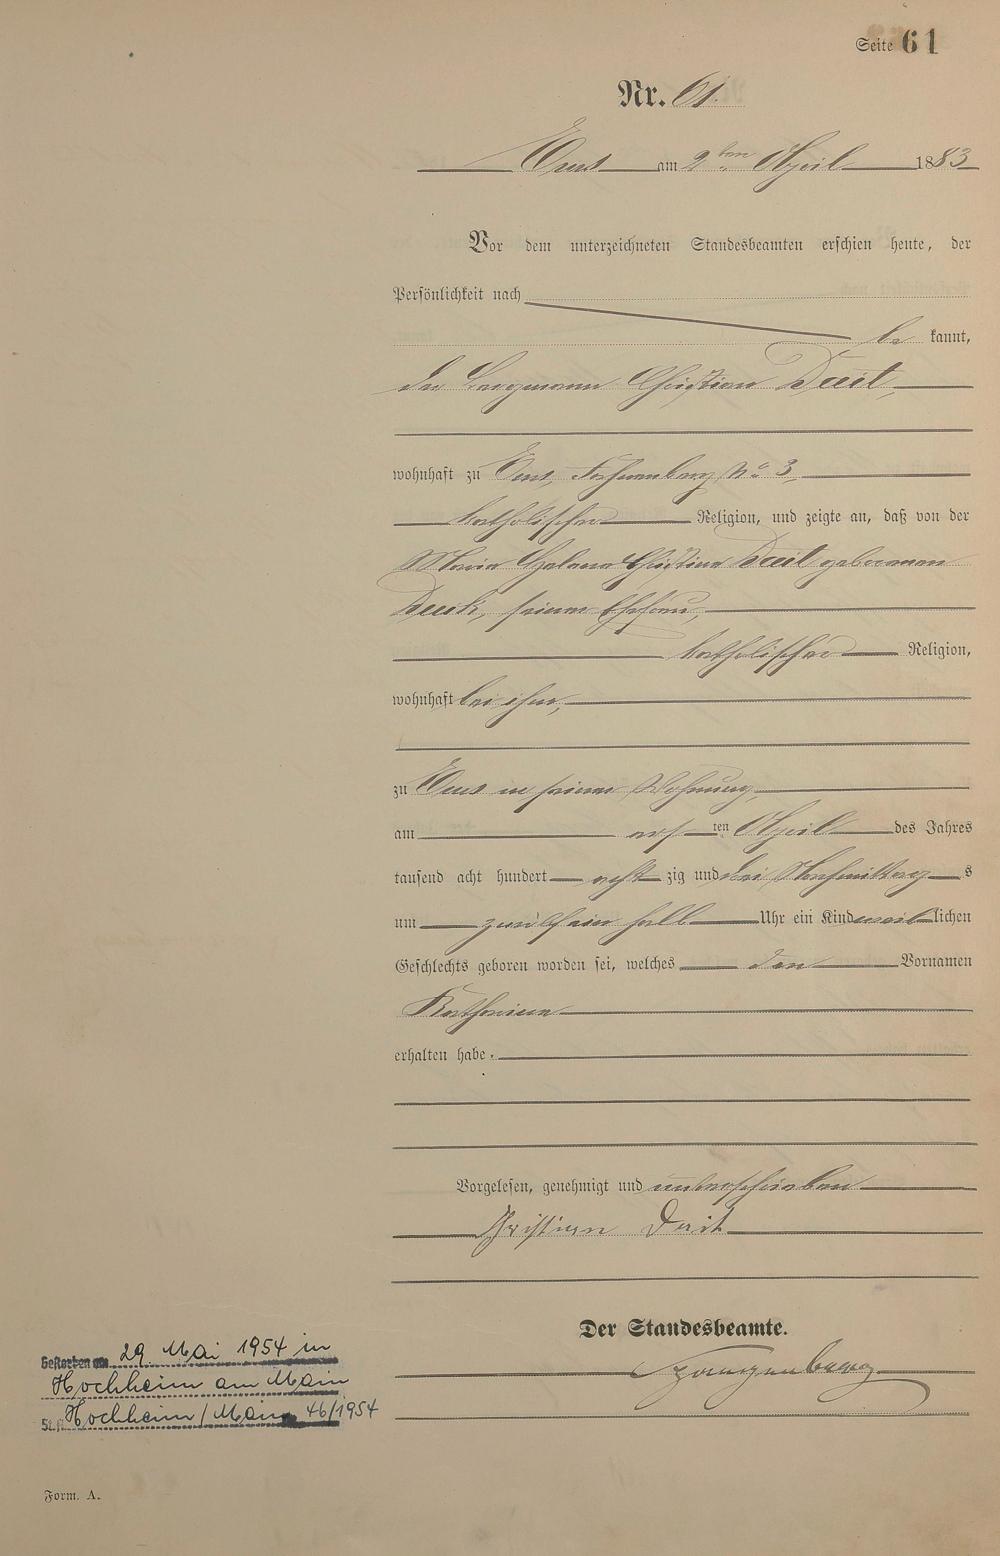 Seite 61
Nr. 61.
Ems am 2ten April 1883
Vor dem unterzeichneten Standesbeamten erschien heute, der
Persönlichkeit nach
be kannt,
der Bergmann Christian Deit,
wohnhaft zu Ems, No 3,
katholischer Religion, und zeigte an, daß von der
Maria Helena Christina Deit geborenen
seiner Ehefrau,
katholischer Religion,
wohnhaft bei ihm,
zu Ems in seiner Wohnung,
am ersten April des Jahres
tausend acht hundert acht zig und drei Nachmittags
um zwölf ein halb Uhr ein Kind weiblichen
Geschlechts geboren worden sei, welches den Vornamen
Katharina
erhalten habe.
Vorgelesen, genehmigt und unterschrieben
Christian Deit
Der Standesbeamte.
Gestorben am 29. Mai 1954 in
Hochheim am Main
St.A. Hochheim/Main 46/1954
Form. A.